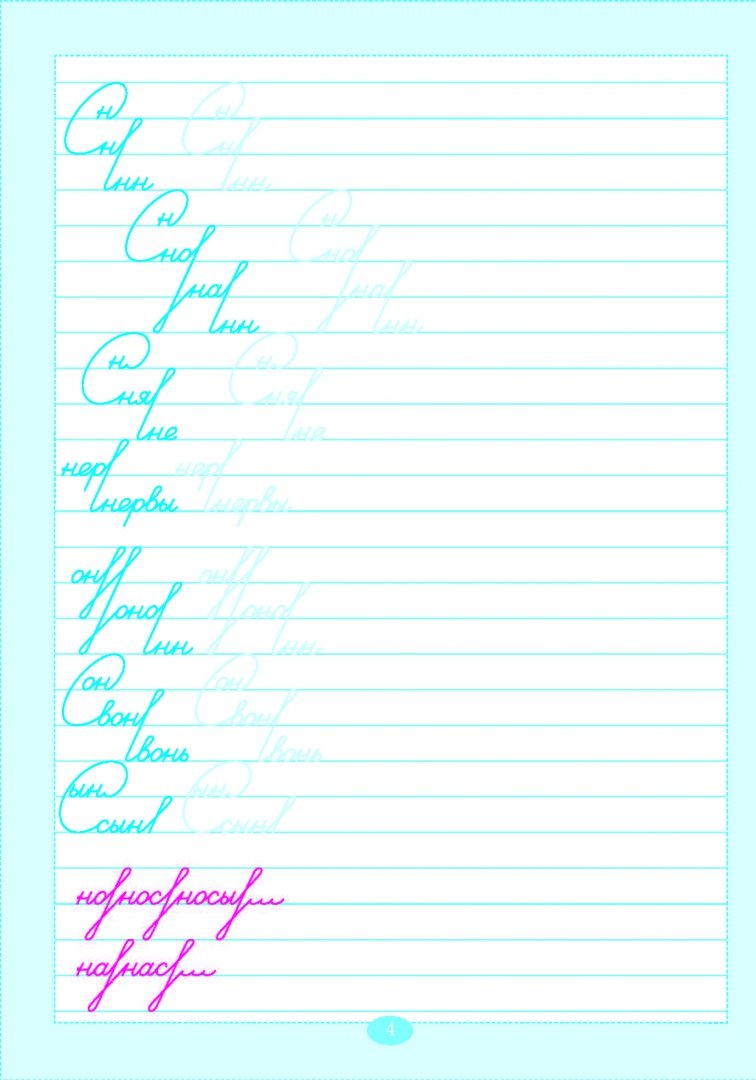 н н
Сн Сн
нн нн
н н
Сно Сно
на на
нн нн
н н
Сня Сня
не не
нер нер
нервы нервы
он он
оно оно
нн нн
он он
Свон Свон
вонь вонь
ын ын
Ссын Ссын
но нос носы
на нас
4